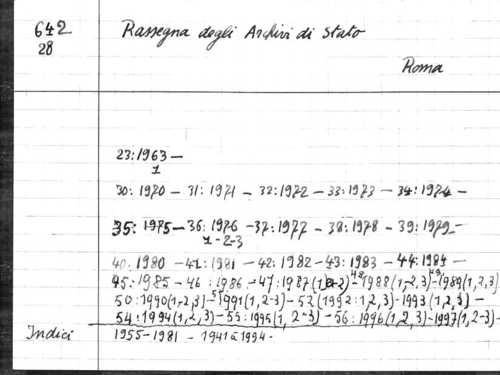 642
28
Rassegna degli Archivi di Stato
Roma
23:1963 —
1
30: 1970 — 31: 1971 — 32:1972 — 33:1973 — 34:1974 —
35: 1975 — 36: 1976 — 37: 1977 — 38: 1978 — 39: 1979 —
1-2-3
40: 1980 — 41: 1981 — 42: 1982 — 43: 1983 — 44: 1984 —
45:1985 — 46: 1986 — 47: 1987 48 1988(1,2,3) 49 1989(1,2,3)
50: 1990(1,2,3) — 51 1991(1,2-3) — 52(1992:1,2,3) — 1993(1,2,3) —
54: 1994(1,2,3) — 55: 1995(1,2-3) — 56: 1996(1,2,3) — 1997(1,2-3) —
Indici 1955-1981 — 1941 a 1994.